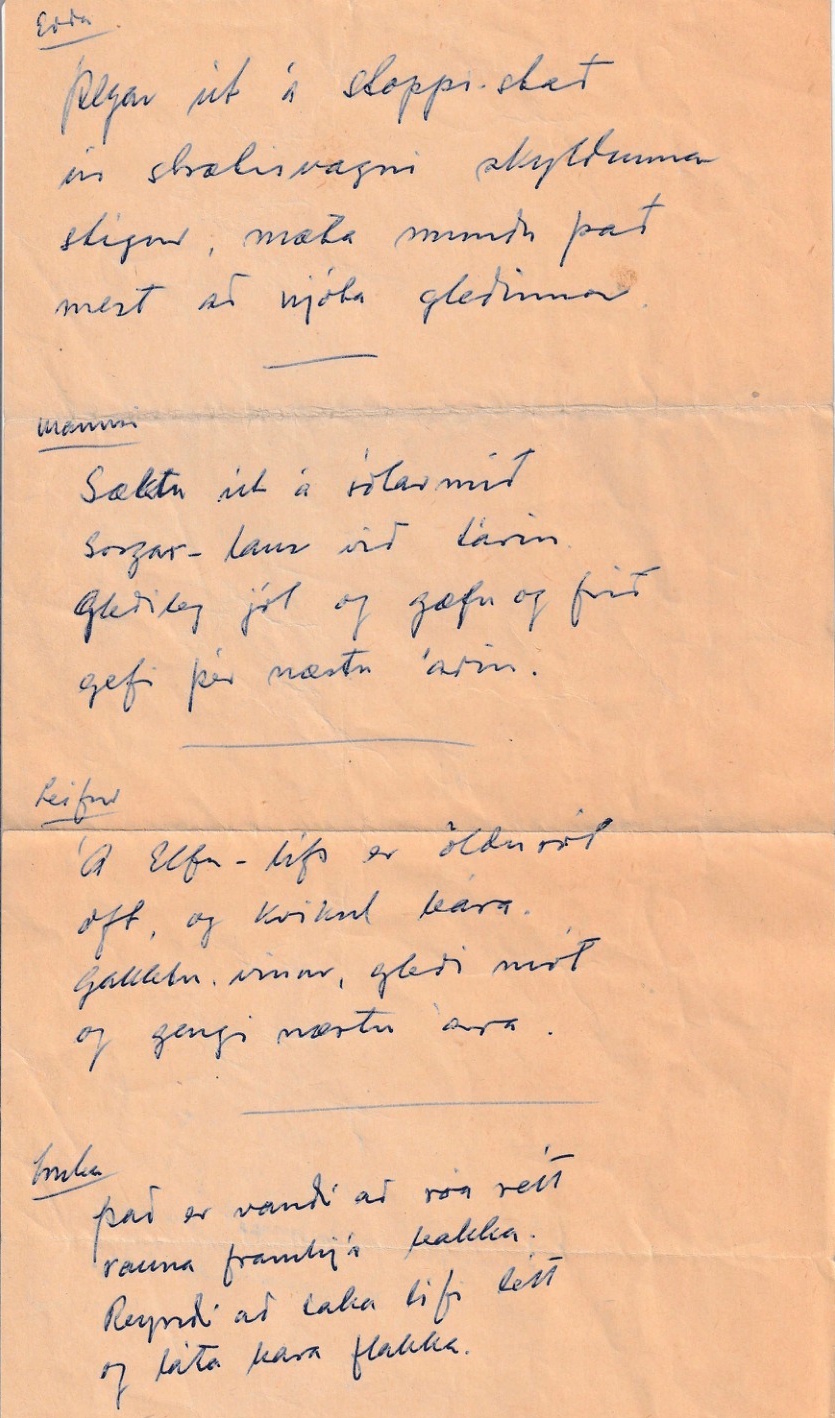 Edda
Þegar út á stoppi-stað
úr strætisvagni skyldunnar
stígur, mæta mundu það
mest að njóta gleðinnar.
Mammi
Sæktu út á sólarmið
sorgar-laus við tárin.
Gleðileg jól og gæfu og frið
gefi þér næstu árin.
Leifur
Á Elfu-lífs er öldurót
oft, og kvikul bára.
Gakktu. vinur, gleði mót
og gengi næstu ára.
það er vandi að róa rétt
rauna framhjá bakka.
Reyndi að taka lífi létt
og láta bara flakka.